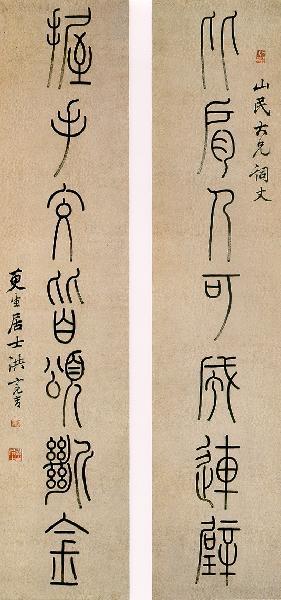 山民大兄詞丈
比肩人可成連璧
握手交皆頌斷金
更生居士洪亮吉